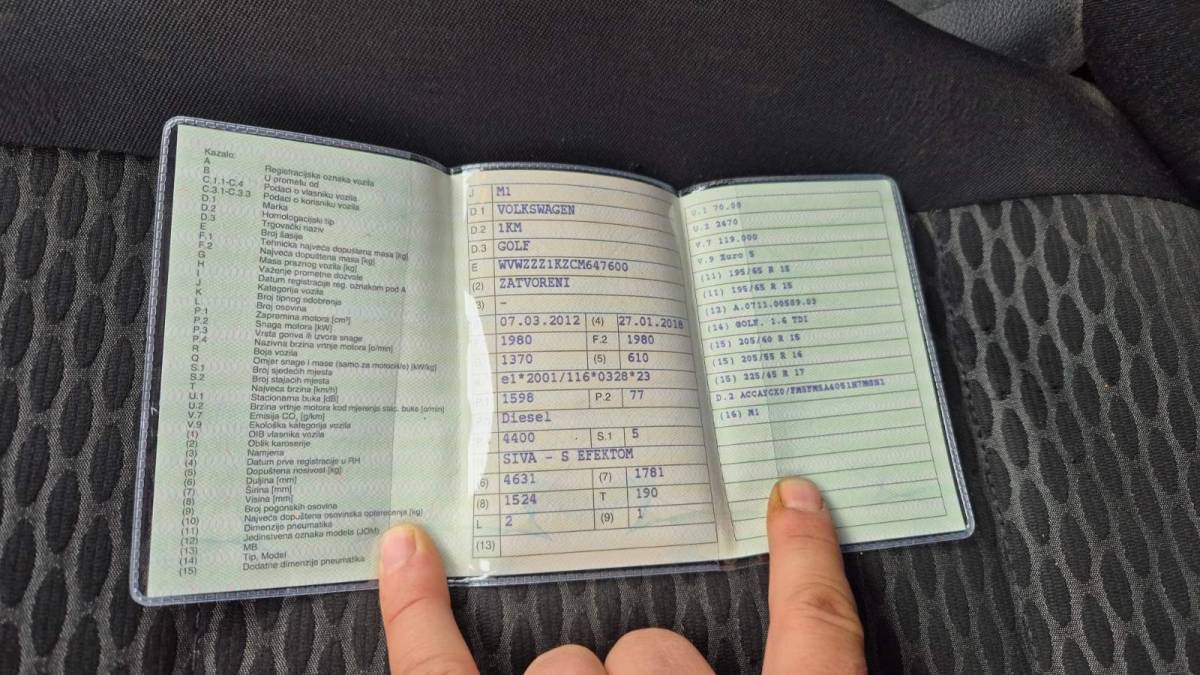 Kazalo:
A Registracijska oznaka vozila
B U prometu od
C.1.1-C.4 Podaci o vlasniku vozila
C.3.1-C.3.3 Podaci o korisniku vozila
D.1 Marka
D.2 Homologacijski tip
D.3 Trgovački naziv
E Broj šasije
F.1 Tehnička najveća dopuštena masa [kg]
F.2 Najveća dopuštena masa [kg]
G Masa praznog vozila [kg]
H Važenje prometne dozvole
I Datum registracije reg. oznakom pod A
J Kategorija vozila
K Broj tipnog odobrenja
L Broj osovina
P.1 Zapremina motora [cm³]
P.2 Snaga motora [kW]
P.3 Vrsta goriva ili izvora snage
P.4 Nazivna brzina vrtnje motora [o/min]
R Boja vozila
Q Omjer snage i mase (samo za motocikle) [kW/kg]
S.1 Broj sjedećih mjesta
S.2 Broj stajaćih mjesta
T Najveća brzina [km/h]
U.1 Stacionarna buka [dB]
U.2 Brzina vrtnje motora kod mjerenja stac. buke [o/min]
V.7 Emisija CO₂ [g/km]
V.9 Ekološka kategorija vozila
(1) OIB vlasnika vozila
(2) Oblik karoserije
(3) Namjena
(4) Datum prve registracije u RH
(5) Dopuštena nosivost [kg]
(6) Duljina [mm]
(7) Širina [mm]
(8) Visina [mm]
(9) Broj pogonskih osovina
(10) Najveća dopuštena osovinska opterećenja [kg]
(11) Dimenzije pneumatika
(12) Jedinstvena oznaka modela (JOM)
(13) MB
(14) Tip, Model
(15) Dodatne dimenzije pneumatika
J M1
D.1 VOLKSWAGEN
D.2 1KM
D.3 GOLF
E WVWZZZ1KZCM647600
(2) ZATVORENI
(3) -
07.03.2012 (4) 27.01.2018
1980 F.2 1980
1370 (5) 610
e1*2001/116*0328*23
1598 P.2 77
Diesel
4400 S.1 5
SIVA - S EFEKTOM
(6) 4631 (7) 1781
(8) 1524 T 190
L 2 (9) 1
(13)
U.1 70.00
U.2 2470
V.7 119.000
V.9 Euro 5
(11) 195/65 R 15
(11) 195/65 R 15
(13) A.0711.00589.03
(14) GOLF. 1.6 TDI
(15) 205/60 R 15
(15) 205/55 R 16
(15) 225/45 R 17
D.2
(16) M1